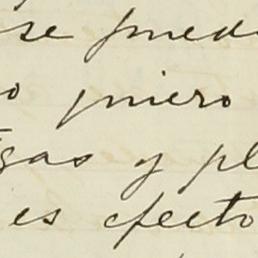 se puede
o quiero
gas y pl
es efecto